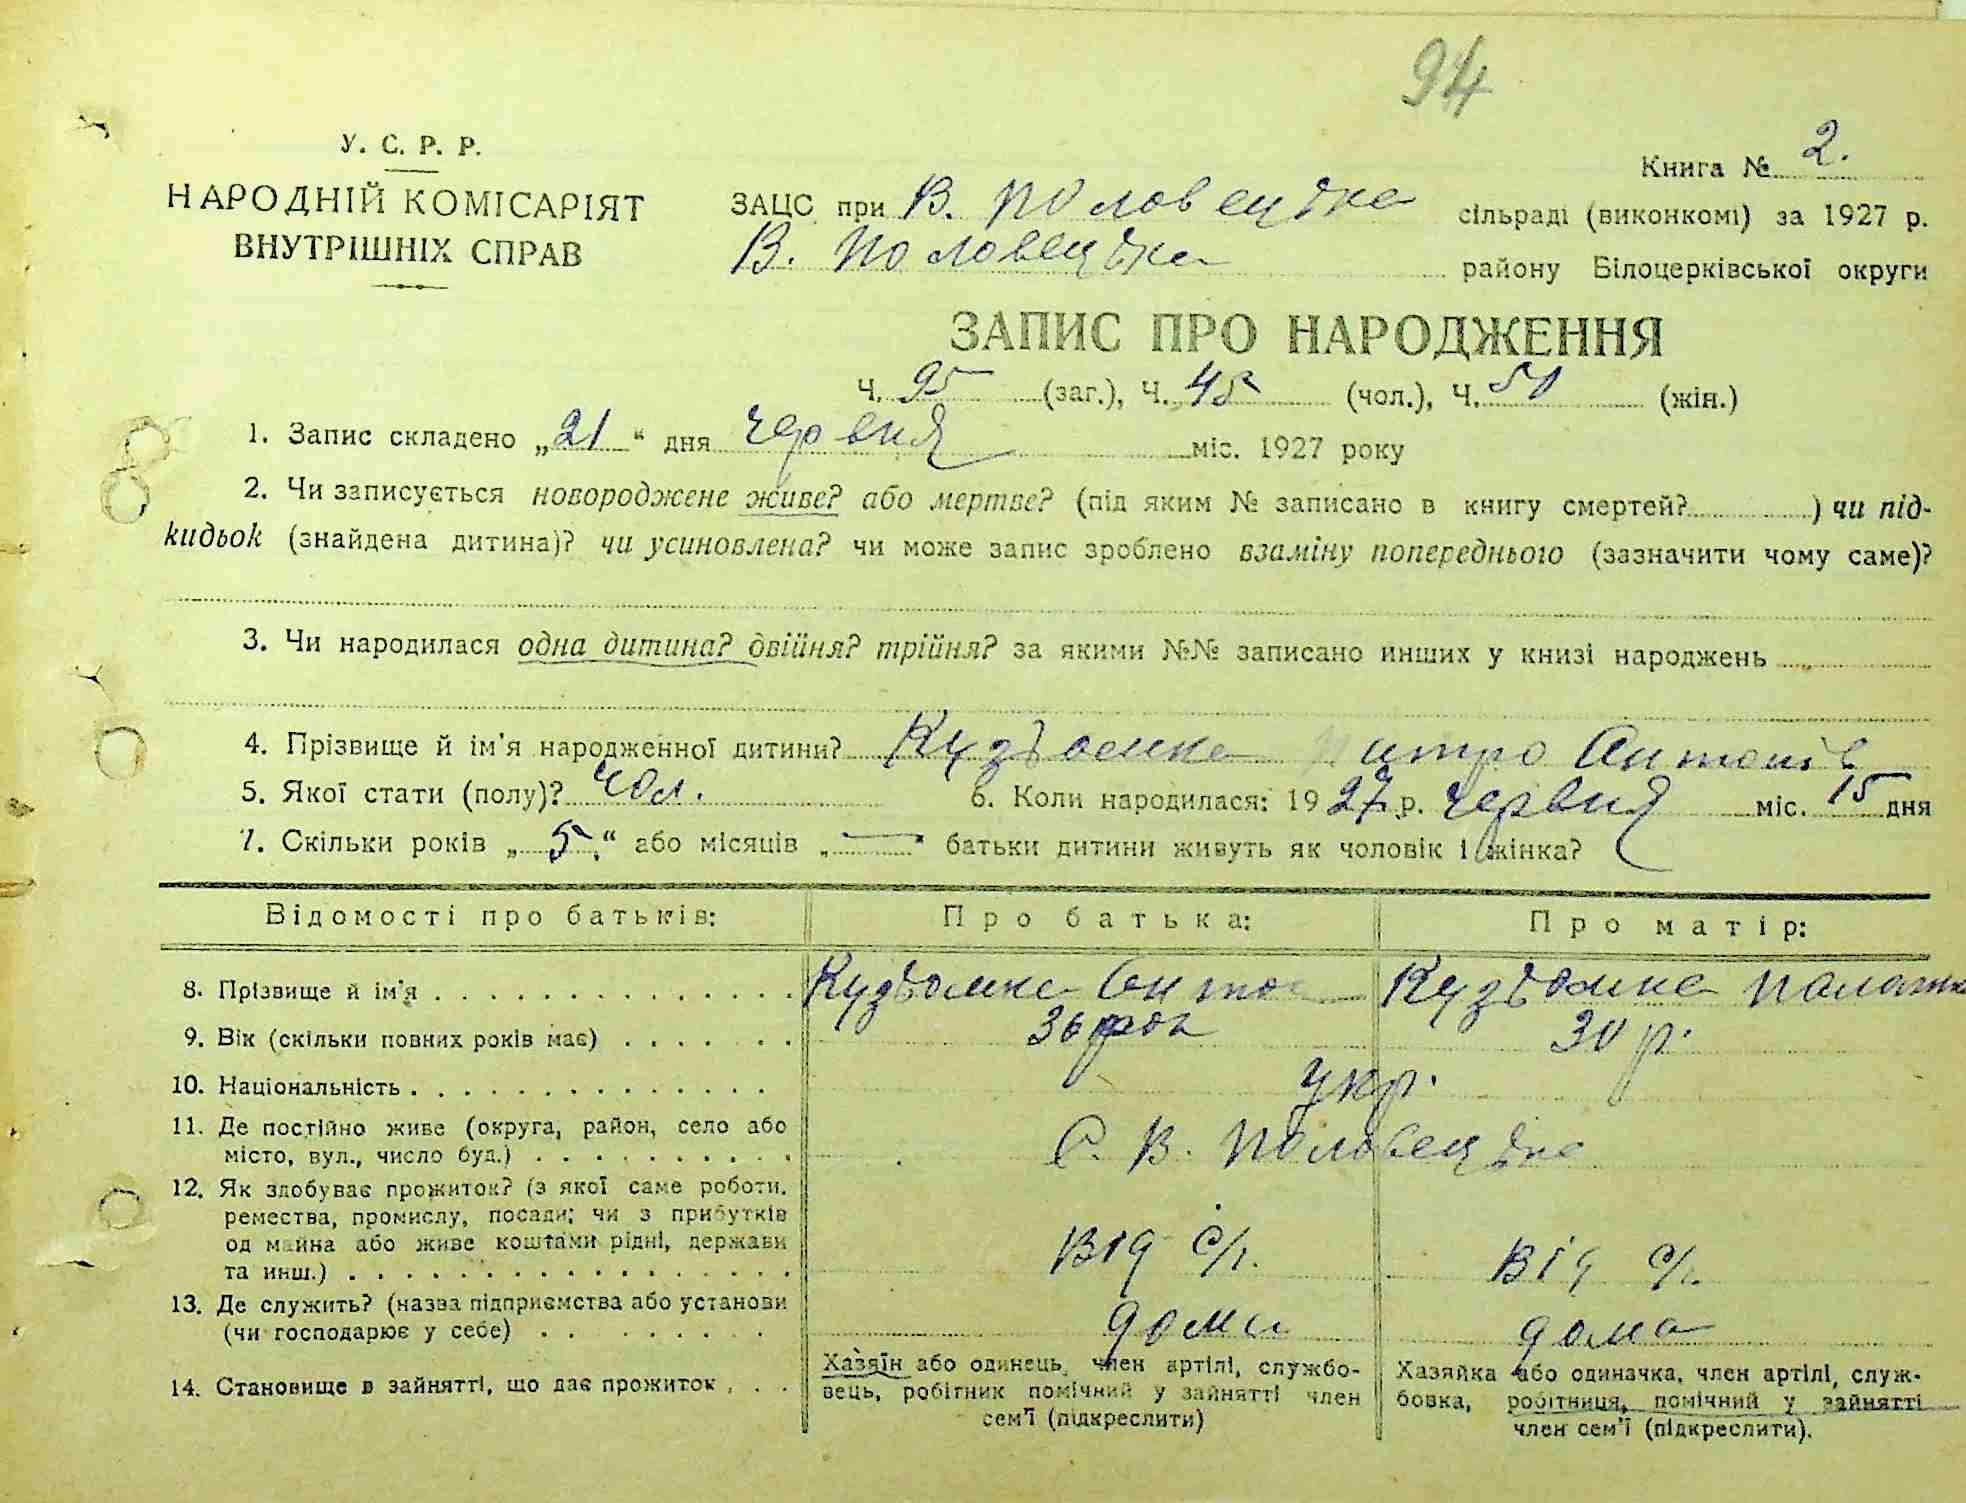 94
У. С. Р. Р.
НАРОДНІЙ КОМІСАРІЯТ
ВНУТРІШНІХ СПРАВ
Книга № 2.
ЗАЦС при В. Половецька сільраді (виконкомі) за 1927 р.
В. Половецька району Білоцерківської округи
ЗАПИС ПРО НАРОДЖЕННЯ
Ч. 95 (заг.), Ч. 45 (чол.), Ч. 50 (жін.)
1. Запис складено „21“ дня червня міс. 1927 року
2. Чи записується новороджене живе? або мертве? (під яким № записано в книгу смертей? ) чи під-
кидьок (знайдена дитина)? чи усиновлена? чи може запис зроблено взаміну попереднього (зазначити чому саме)?
3. Чи народилася одна дитина? двійня? трійня? за якими №№ записано инших у книзі народжень
4. Прізвище й ім'я народженної дитини? Кузьомка Питро Антонів
5. Якої стати (полу)? Чол. 6. Коли народилася: 1927 р. червня міс. 15 дня
7. Скільки років „5“ або місяців „—“ батьки дитини живуть як чоловік і жінка?
Відомості про батьків: Про батька: Про матір:
8. Прізвище й ім'я Кузьомка Антон Кузьомка
9. Вік (скільки повних років має) 36 рок 30 р.
10. Національність укр.
11. Де постійно живе (округа, район, село або
місто, вул., число буд.) С. В. Половецька
12. Як здобуває прожиток? (з якої саме роботи,
ремества, промислу, посади; чи з прибутків
од майна або живе коштами рідні, держави
та инш.) Від с/г. Від с/г.
13. Де служить? (назва підприємства або установи
(чи господарює у себе) дома дома
14. Становище в зайнятті, що дає прожиток
Хазяїн або одинець, член артілі, службо-
вець, робітник помічний у зайнятті член
сем'ї (підкреслити)
Хазяйка або одиначка, член артілі, служ-
бовка, робітниця, помічний у зайнятті
член сем'ї (підкреслити).